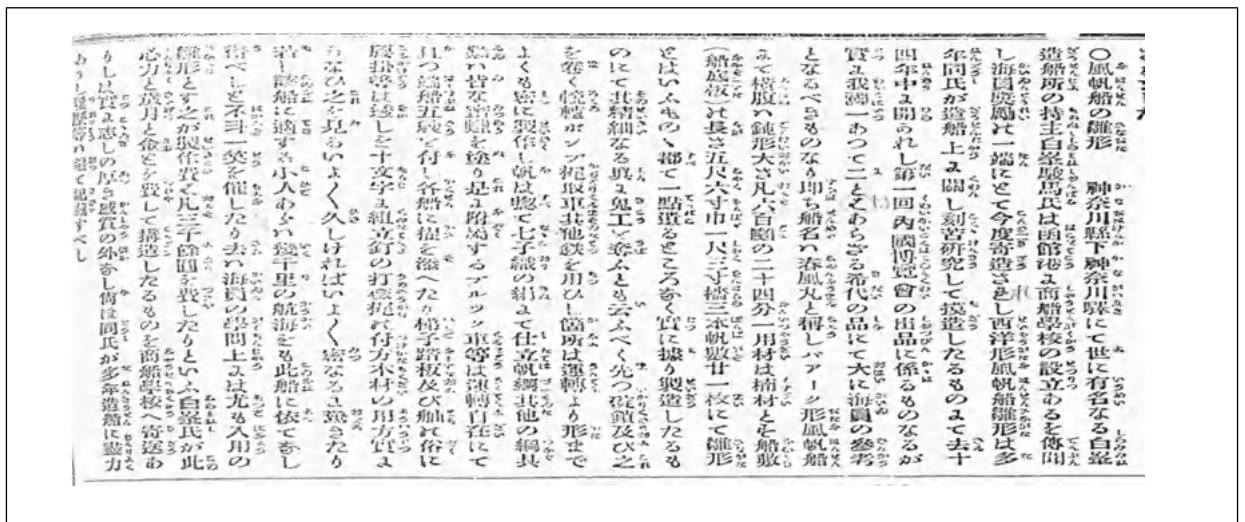 〇風帆船の雛形　神奈川縣下神奈川驛にて世に有名なる白峯
造船所の持主白峯駿馬氏は函館港に商船學校の設立あるを傳聞
し海員奬勵の一端にとて今度寄送さし西洋形風帆船雛形は多
年同氏が造船上に關し刻苦研究して摸造したるものにて去十
四年中に開られし第一回內國博覽會の出品に係るものなるが
實に我國一あつて二とあらざる希代の品にて大に海員の參考
となるべきものなり即ち船名は春風丸と稱しバアーク形風帆船
にて横腹は鈍形大さ凡六百噸の二十四分一用材は楠材とを船敷
(船底板)の長さ五尺六寸巾一尺三寸檣三本帆數廿一枚にて雛形
とはいふものゝ都て一點遺るところなく實に據り製造したるも
のにて其精細なる眞に鬼工を奪ふとも云ふべく先つ碇鎖及び之
を卷く轆轤ポンプ舵取車其他鉄を用ひし箇所は運轉より形まで
よくも密に製作し帆は惣て七子織の絹にて仕立帆綱其他の綱具
は皆な塗り是に附屬するブルック車等は運轉自在にて
且つ端船五艘を付し各船に櫂を添へたり梯子踏板及び舳の俗に
十文字に組立釘の打付方木材の用方實に
之を見るにいよ〱久しければいよ〱密なるに驚きたり
若し該船に適する小人あらは幾千里の航海をも此船に依てなし
得べしと不斗一笑を催したり去は海員の學問上には尤も入用の
雛形とす之が製作費も凡三千餘圓を費したりといふ白峯氏が此
心力と歲月と金とを費して搆造したるものを商船學校へ寄送あ
りしは實に志しの厚き感賞の外なし尙は同氏が多年造船に盡力
ありし履歷等は追て記載すべし